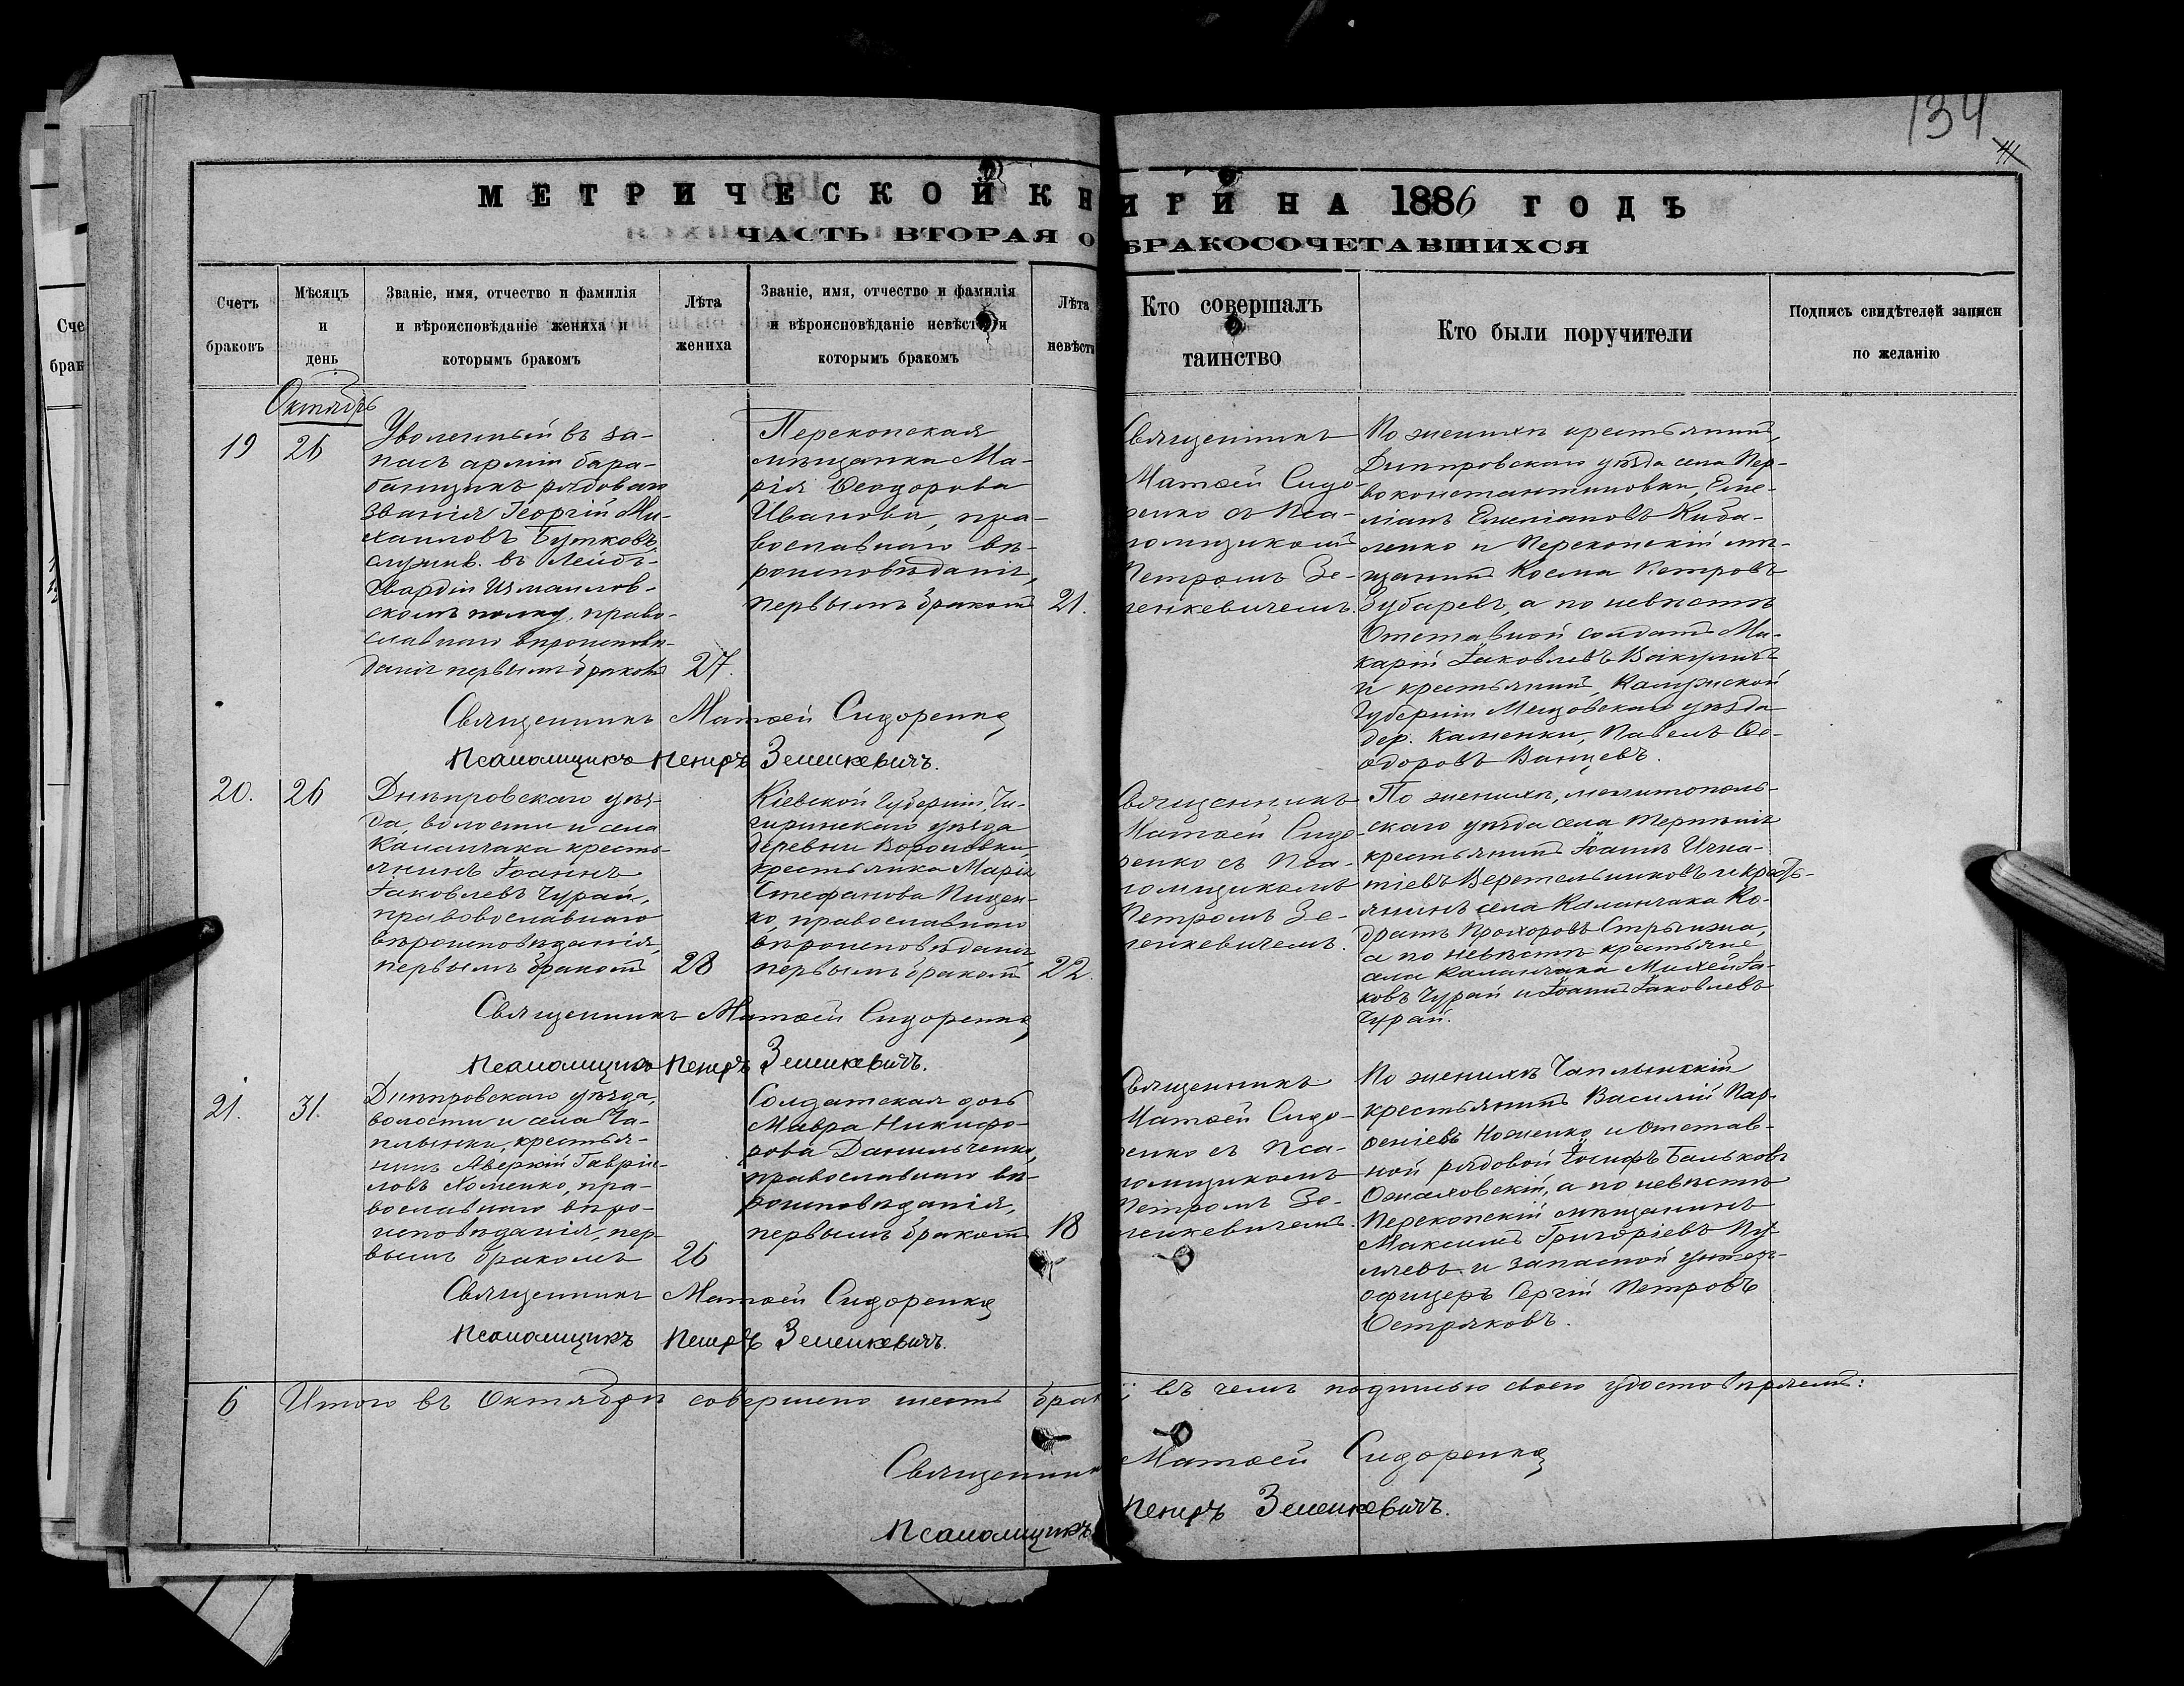 134
11
МЕТРИЧЕСКОЙ КНИГИ НА 1886 ГОДЪ
ЧАСТЬ ВТОРАЯ О БРАКОСОЧЕТАВШИХСЯ
Счетъ
браковъ
Мѣсяцъ
и
день
Званіе, имя, отчество и фамилія
и вѣроисповѣданіе жениха и
которымъ бракомъ
Лѣта
жениха
Званіе, имя, отчество и фамилія
и вѣроисповѣданіе невѣсты и
которымъ бракомъ
Лѣта
невѣсты
Кто совершалъ
таинство
Кто были поручители
Подпись свидѣтелей записи
по желанію
Октябрь
19
26
Уволенный въ за-
пасъ арміи бара-
банщикъ рядоваго
званія Георгій Ми-
хаиловъ Бутковъ,
служив. въ Лейбъ-
Гвардіи Измаилов-
скомъ полку, право-
славнаго вѣроисповѣ-
данія первымъ бракомъ
27.
Перекопская
мѣщанка Ма-
рія Ѳеодорова
Иванова, пра-
вославнаго вѣ-
роисповѣданія,
первымъ бракомъ
21.
Священникъ
Матѳей Сидо-
ренко съ Пса-
ломщикомъ
Петромъ Зе-
ленкевичемъ.
По женихѣ крестьянинъ,
Днѣпровскаго уѣзда села Пер-
воконстантиновки, Еме-
ліанъ Емеліановъ Киба-
ленко и Перекопскій мѣ-
щанинъ Косма Петровъ
Зубаревъ, а по невѣстѣ
Отставной солдатъ Ма-
карій Іаковлевъ Вакулинъ
и крестьянинъ, Калужской
Губерніи Мещовскаго уѣзда
дер. Каменки, Павелъ Ѳе-
одоровъ Ванцевъ.
Священникъ Матѳей Сидоренко
Псаломщикъ Петръ Зеленкевичъ.
20.
26
Днѣпровскаго уѣз-
да, волости и села
Каланчака кресть-
янинъ Іоаннъ
Іаковлевъ Чурай,
правовославнаго
вѣроисповѣданія,
первымъ бракомъ
28
Кіевской Губерніи Чи-
гиринскаго уѣзда
деревни Вороновки
крестьянка Марія
Стефанова Пищен-
ко, православнаго
вѣроисповѣданія,
первымъ бракомъ
22.
Священникъ
Матѳей Сидо-
ренко съ Пса-
ломщикомъ
Петромъ Зе-
ленкевичемъ.
По женихѣ, мелитополь-
скаго уѣзда села Терпѣнія
крестьянинъ Іоаннъ Игна-
тіевъ Веретельниковъ и кресть-
янинъ села Каланчака Ко-
дратъ Прохоровъ Стрижка,
а по невѣстѣ крестьяне
села Каланчака Михей Іа-
ковъ Чурай и Іоаннъ Іаковлевъ
Чурай.
Священникъ Матѳей Сидоренко
Псаломщикъ Петръ Зеленкевичъ.
21.
31.
Днѣпровскаго уѣзда,
волости и села Ча-
плынки, крестья-
нинъ Аверкій Гаврiи-
ловъ Хоменко, пра-
вославнаго вѣро-
исповѣданія, пер-
вымъ бракомъ
26
Солдатская дочь
Мавра Никифо-
рова Данильченко,
православнаго вѣ-
роисповѣданія,
первымъ бракомъ
18
Священникъ
Матѳей Сидо-
ренко съ Пса-
ломщикомъ
Петромъ Зе-
ленкевичемъ.
По женихѣ Чаплынскій
крестьянинъ Василій Пар-
ѳеніевъ Ноженко и Отстав-
ной рядовой Іосифъ Бальковъ
Ожаховскій, а по невѣстѣ
Перекопскій мѣщанинъ
Максимъ Григоріевъ Пу-
и запасной унтеръ-
офицеръ Сергій Петровъ
Остряковъ.
Священникъ Матѳей Сидоренко
Псаломщикъ Петръ Зеленкевичъ.
6
Итого въ Октябрѣ совершено шесть брак въ чемъ подписью своею удостовѣряемъ:
Священникъ Матѳей Сидоренко
Псаломщикъ Петръ Зеленкевичъ.